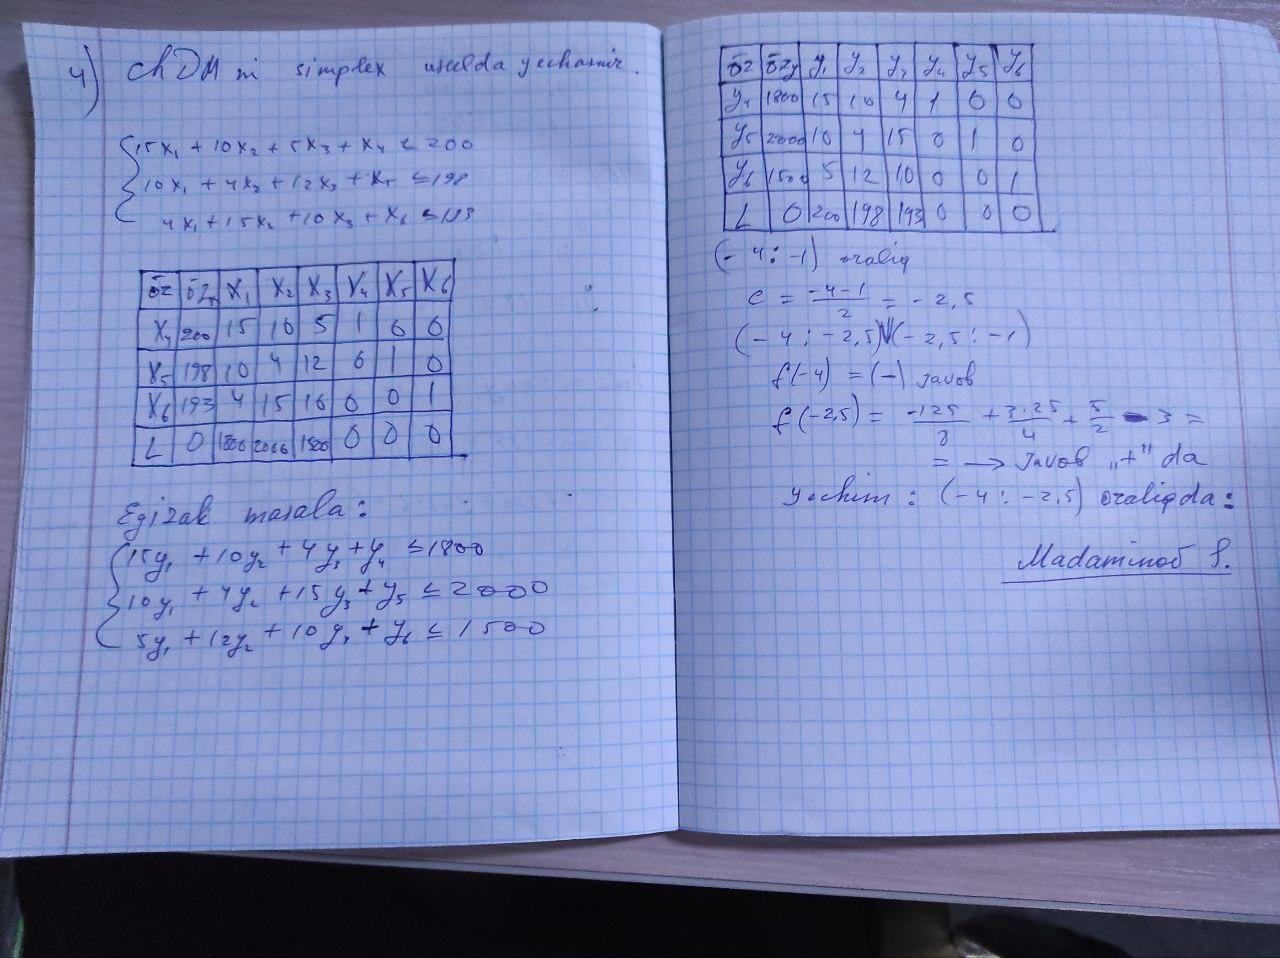 4) ChDM ni simplex usulda yechamiz.
15x₁ + 10x₂ + 5x₃ + x₄ ≤ 200
10x₁ + 4x₂ + 12x₃ + x₅ ≤ 198
4x₁ + 15x₂ + 10x₃ + x₆ ≤ 193
ŌZ ŌZq X₁ X₂ X₃ X₄ X₅ X₆
X₄ 200 15 10 5 1 0 0
X₅ 198 10 4 12 0 1 0
X₆ 193 4 15 10 0 0 1
L 0 1800 2000 1500 0 0 0
Egizak masala:
15y₁ + 10y₂ + 4y₃ + y₄ ≤ 1800
10y₁ + 4y₂ + 15y₃ + y₅ ≤ 2000
5y₁ + 12y₂ + 10y₃ + y₆ ≤ 1500
ŌZ ŌZq y₁ y₂ y₃ y₄ y₅ y₆
y₄ 1800 15 10 4 1 0 0
y₅ 2000 10 4 15 0 1 0
y₆ 1500 5 12 10 0 0 1
L 0 200 198 193 0 0 0
(-4 : -1) oraliq
c = -4-1/2 = -2,5
(-4 : -2,5) V (-2,5 : -1)
f(-4) = (-) javob
f(-2,5) = -125/8 + 3·25/4 + 5/2 - 3 =
= → javob „+" da
yechim : (-4 : -2,5) oraliqda:
Madaminov S.